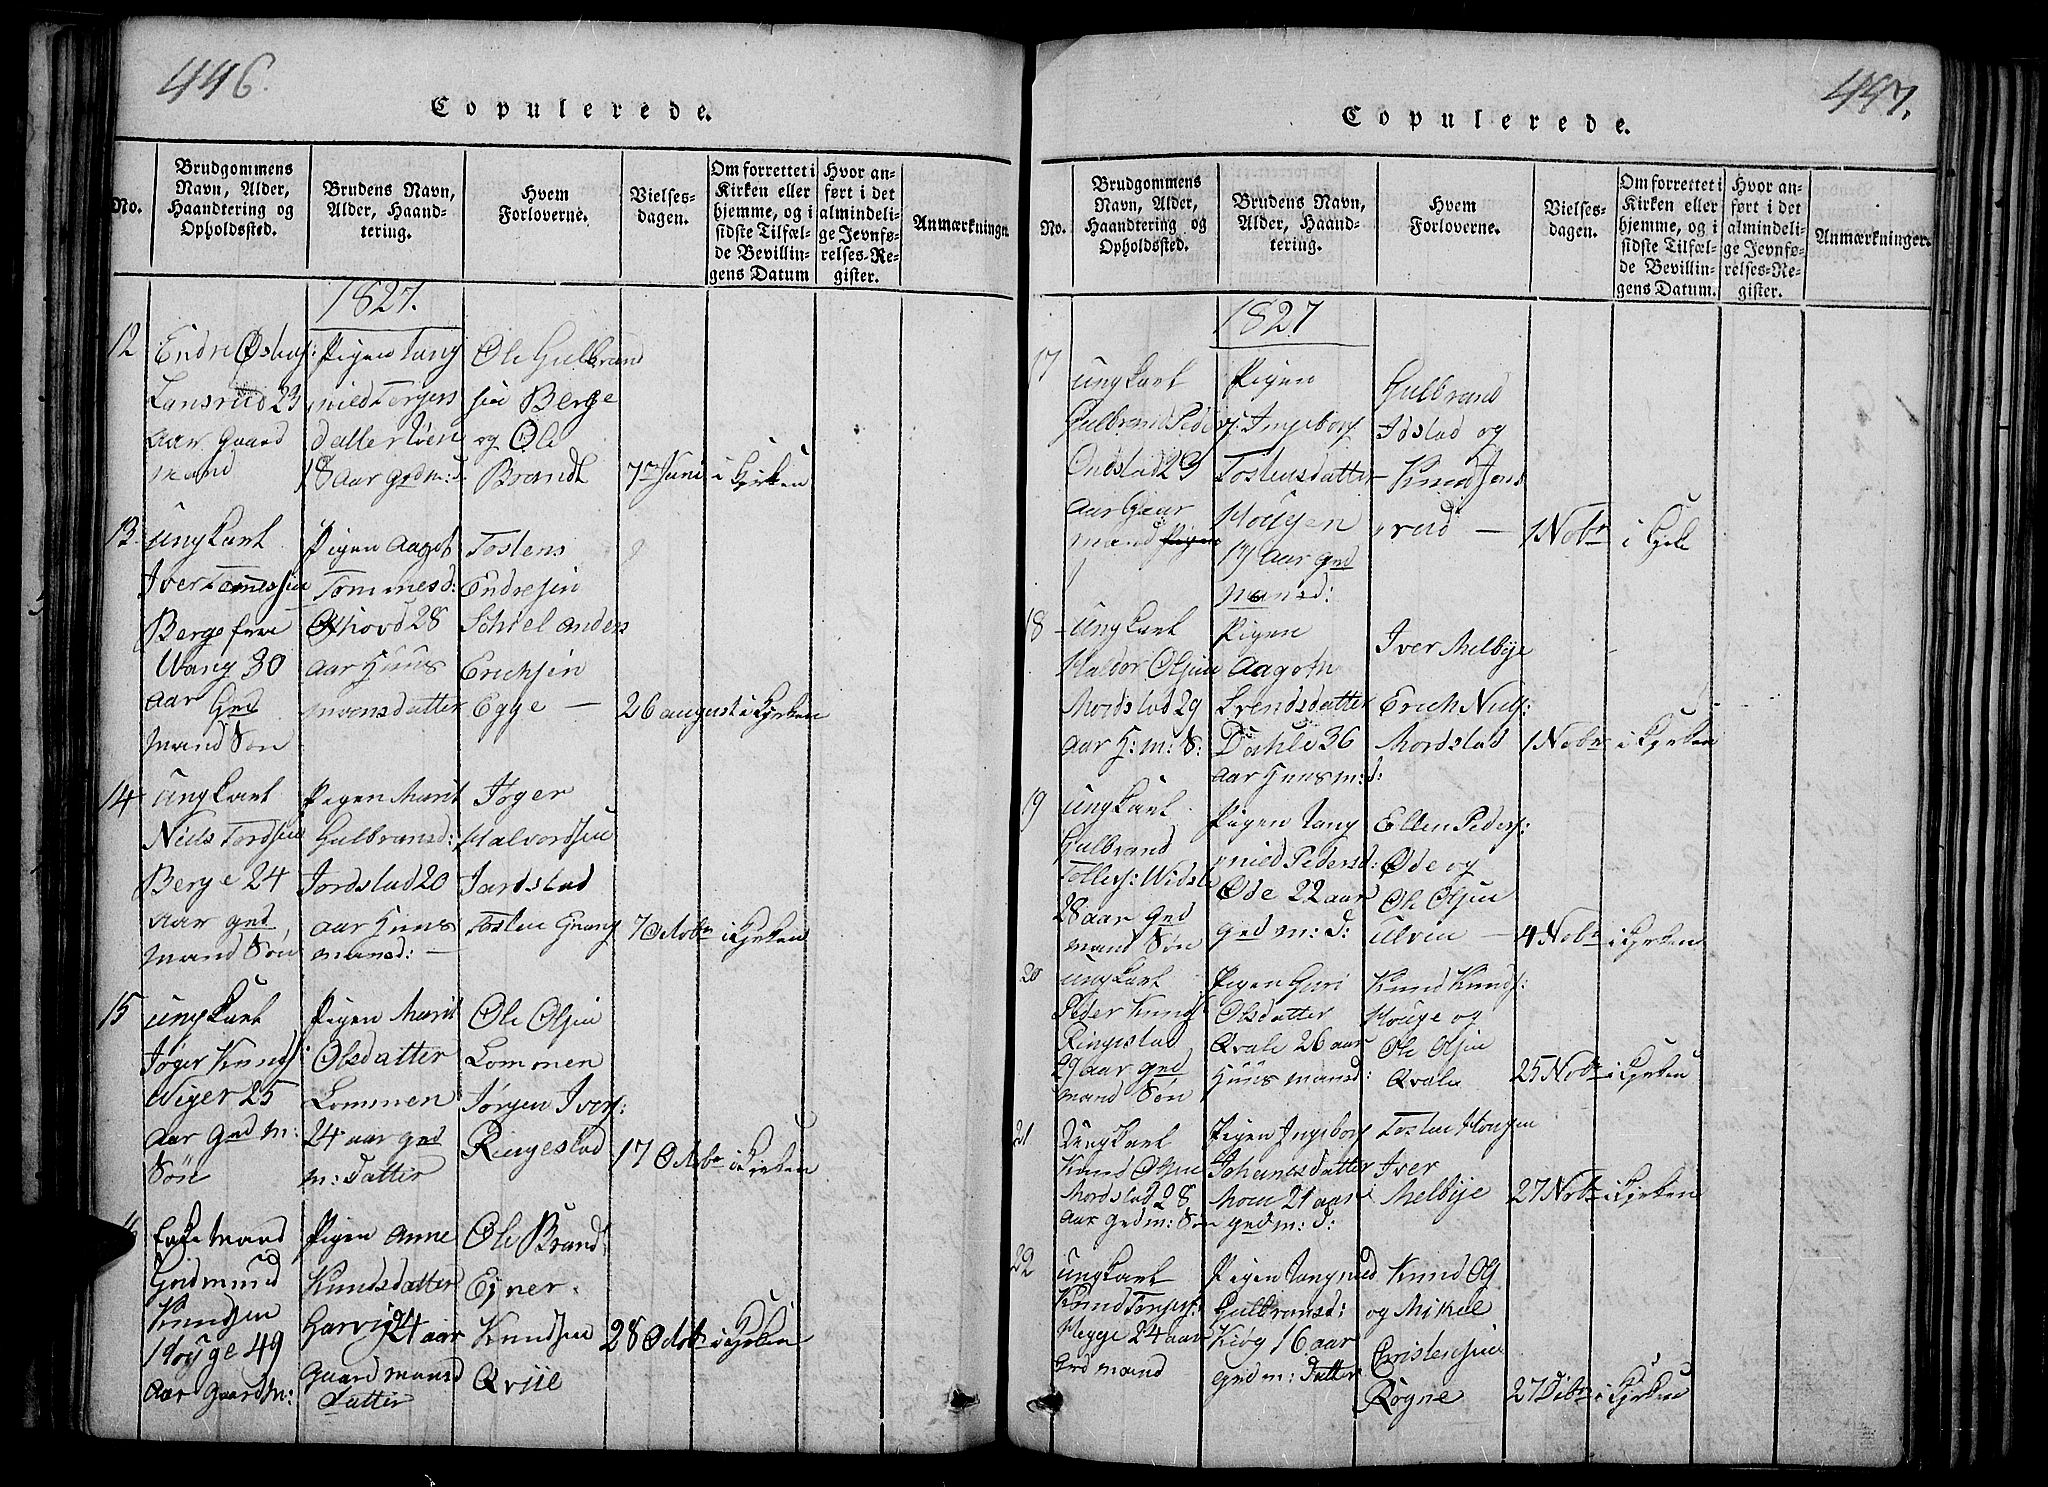 446.
Copulerede.
No.
Brudgommens
Navn, Alder,
Haandtering og
Opholdssted.
Brudens Navn,
Alder, Haand-
tering.
Hvem
Forloverne.
Vielses-
dagen.
Om forrettet i
Kirken eller
hjemme, og i
sidste Tilfæl-
de Bevillin-
gens Datum
Hvor an-
ført i det
almindeli-
ge Jevnfø-
relses-Re-
gister.
Anmærkninger
1827.
12
Endre
23
Aar Gaard
mand
Pigen Tang
nied Torgers
datter Lien
18 aar
Ole Gulbrand
sen Berge
og Ole
Brandt
7de Juni
i Kirken
13.
Ungkarl
Iver
Berge fra
Wang 30
Aar Grd
mand Søn
Pigen Aagot
Tommesd:
28
aar Huus
mansdatter
Tostens
Endresen
Anders
Erichsen
Egge —
26 august
i Kirken
14
Ungkarl
Niels Tordsen
Berge 24
Aar grd
mand Søn
Pigen Marit
Gulbransd:
Jordstad 20
aar Huus
mansd: —
Tøger
Halvordsen
Jardstad
Tosten
7 Octobr
i Kirken
15
Ungkarl
Tøger Knuds:
Wiger 25
Aar Grd m:
Søn
Pigen Marit
Olsdatter
Lommen
24 aar grd
m: Datter
Ole Olsen
Lommen
Jørgen Ivers:
Ringestad
17 Octobr
i Kirken
Enkemand
Gudmund
Knudsen
Houge 49
Aar Gaardm:
Pigen Anne
Knudsdatter
24 aar
Gaardmands
Datter
Ole Brandt
Ejner
Knudsen
Qviie
28 Octobr
i Kirken
447.
Copulerede.
No.
Brudgommens
Navn, Alder,
Haandtering og
Opholdssted.
Brudens Navn,
Alder, Haand-
tering.
Hvem
Forloverne.
Vielses-
dagen.
Om forrettet i
Kirken eller
hjemme, og i
sidste Tilfæl-
de Bevillin-
gens Datum.
Hvor an-
ført i det
almindeli-
ge Jevnfø-
relses-Re-
gister.
Anmærkninger.
1827
17
Ungkarl
Gulbrand Peders:
Onstad 23
Aar Gaar
mand
Pigen
Ingeborg
Tostensdatter
Hougen
19 Aar grd
mansd:
Gulbrand
Idstad og
Knud Jons
rud —
1 Nobr
i Kirke
18
Ungkarl
Haldor Olsen
Mordstad 29
Aar H: m: S:
Pigen
Aagoth
Svendsdatter
Dahle 36
Aar Huusm: d:
Iver Melbye
Erich Niels:
Mordstad
1 Nobr
i Kirken
19
Ungkarl
Gulbrand
Tollefs:
28 aar grd
mand Søn
Pigen Tang
nied Pedersd:
Øde 22 aar
grd m: d:
Ellen Peders:
Øde og
Ole Olsen
Ulven —
4 Nobr
i Kirken
20
Ungkarl
Peder Knuds:
Ringestad
29 aar grd
mand Søn
Pigen Guri
Olsdatter
Qvale 26 aar
Huus mansd:
Knud Knuds:
Houge og
Ole Olsen
Qvale
25 Nobr
i Kirken
21
Ungkarl
Knud Olsen
Mordstad 28
Aar grdm: Søn
Pigen Ingeborg
Johannesdatter
Moen 21 aar
grdm: d:
Tosten Hougen
Iver
Melbye
27 Nobr
i Kirken
22
Ungkarl
Knud Torgers:
Hegge 24 aar
Grd mand
Pigen Tangnied
Gulbransd:
16 aar
grd m: Datter
Knud
og Mikkel
Christensen
Rogne
27 Decbr
i Kirken